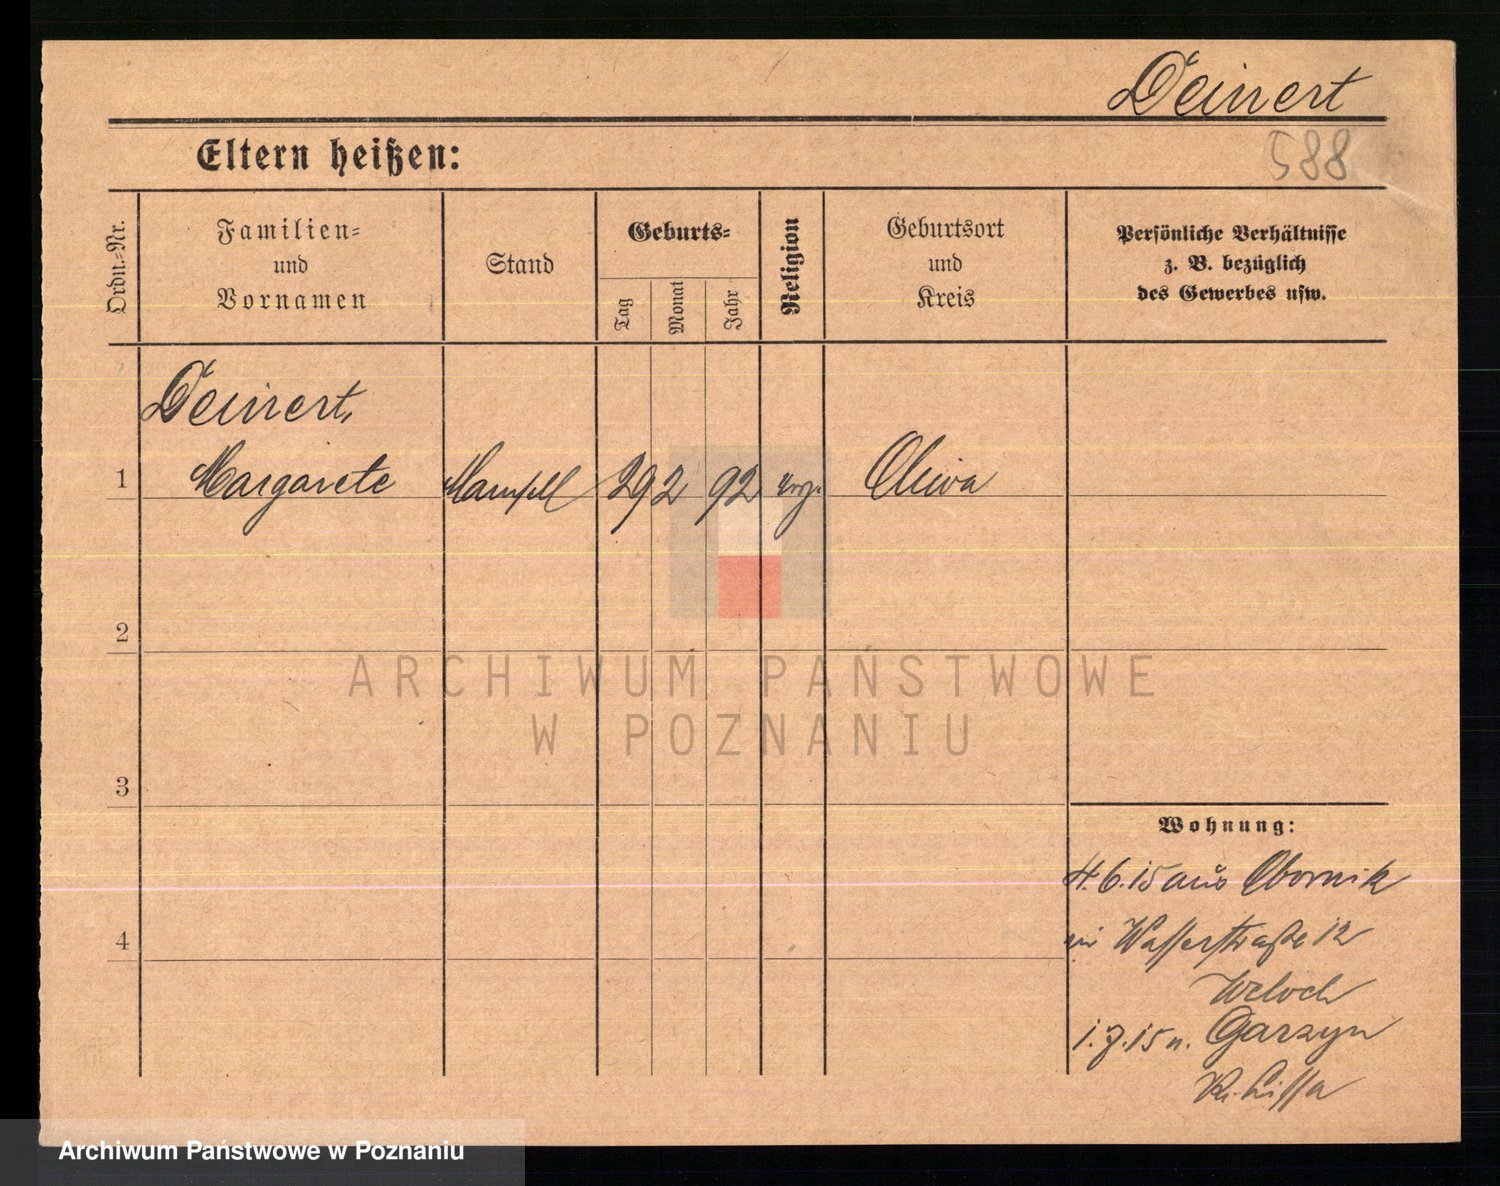 Deinert
588
Eltern heißen:
Ordn.-Nr.
Familien-
und
Vornamen
Stand
Geburts-
Tag
Monat
Jahr
Religion
Geburtsort
und
Kreis
Persönliche Verhältnisse
z. B. bezüglich
des Gewerbes usw.
Deinert,
1 Margarete Mamsell 29 2 92 evg. Oliva
2
3
4
ARCHIWUM PAŃSTWOWE
W POZNANIU
Wohnung:
4.6.15 aus Obornik
Wasserstraße 12
1.7.15 n. Garzyn
Kr. Lissa
Archiwum Państwowe w Poznaniu